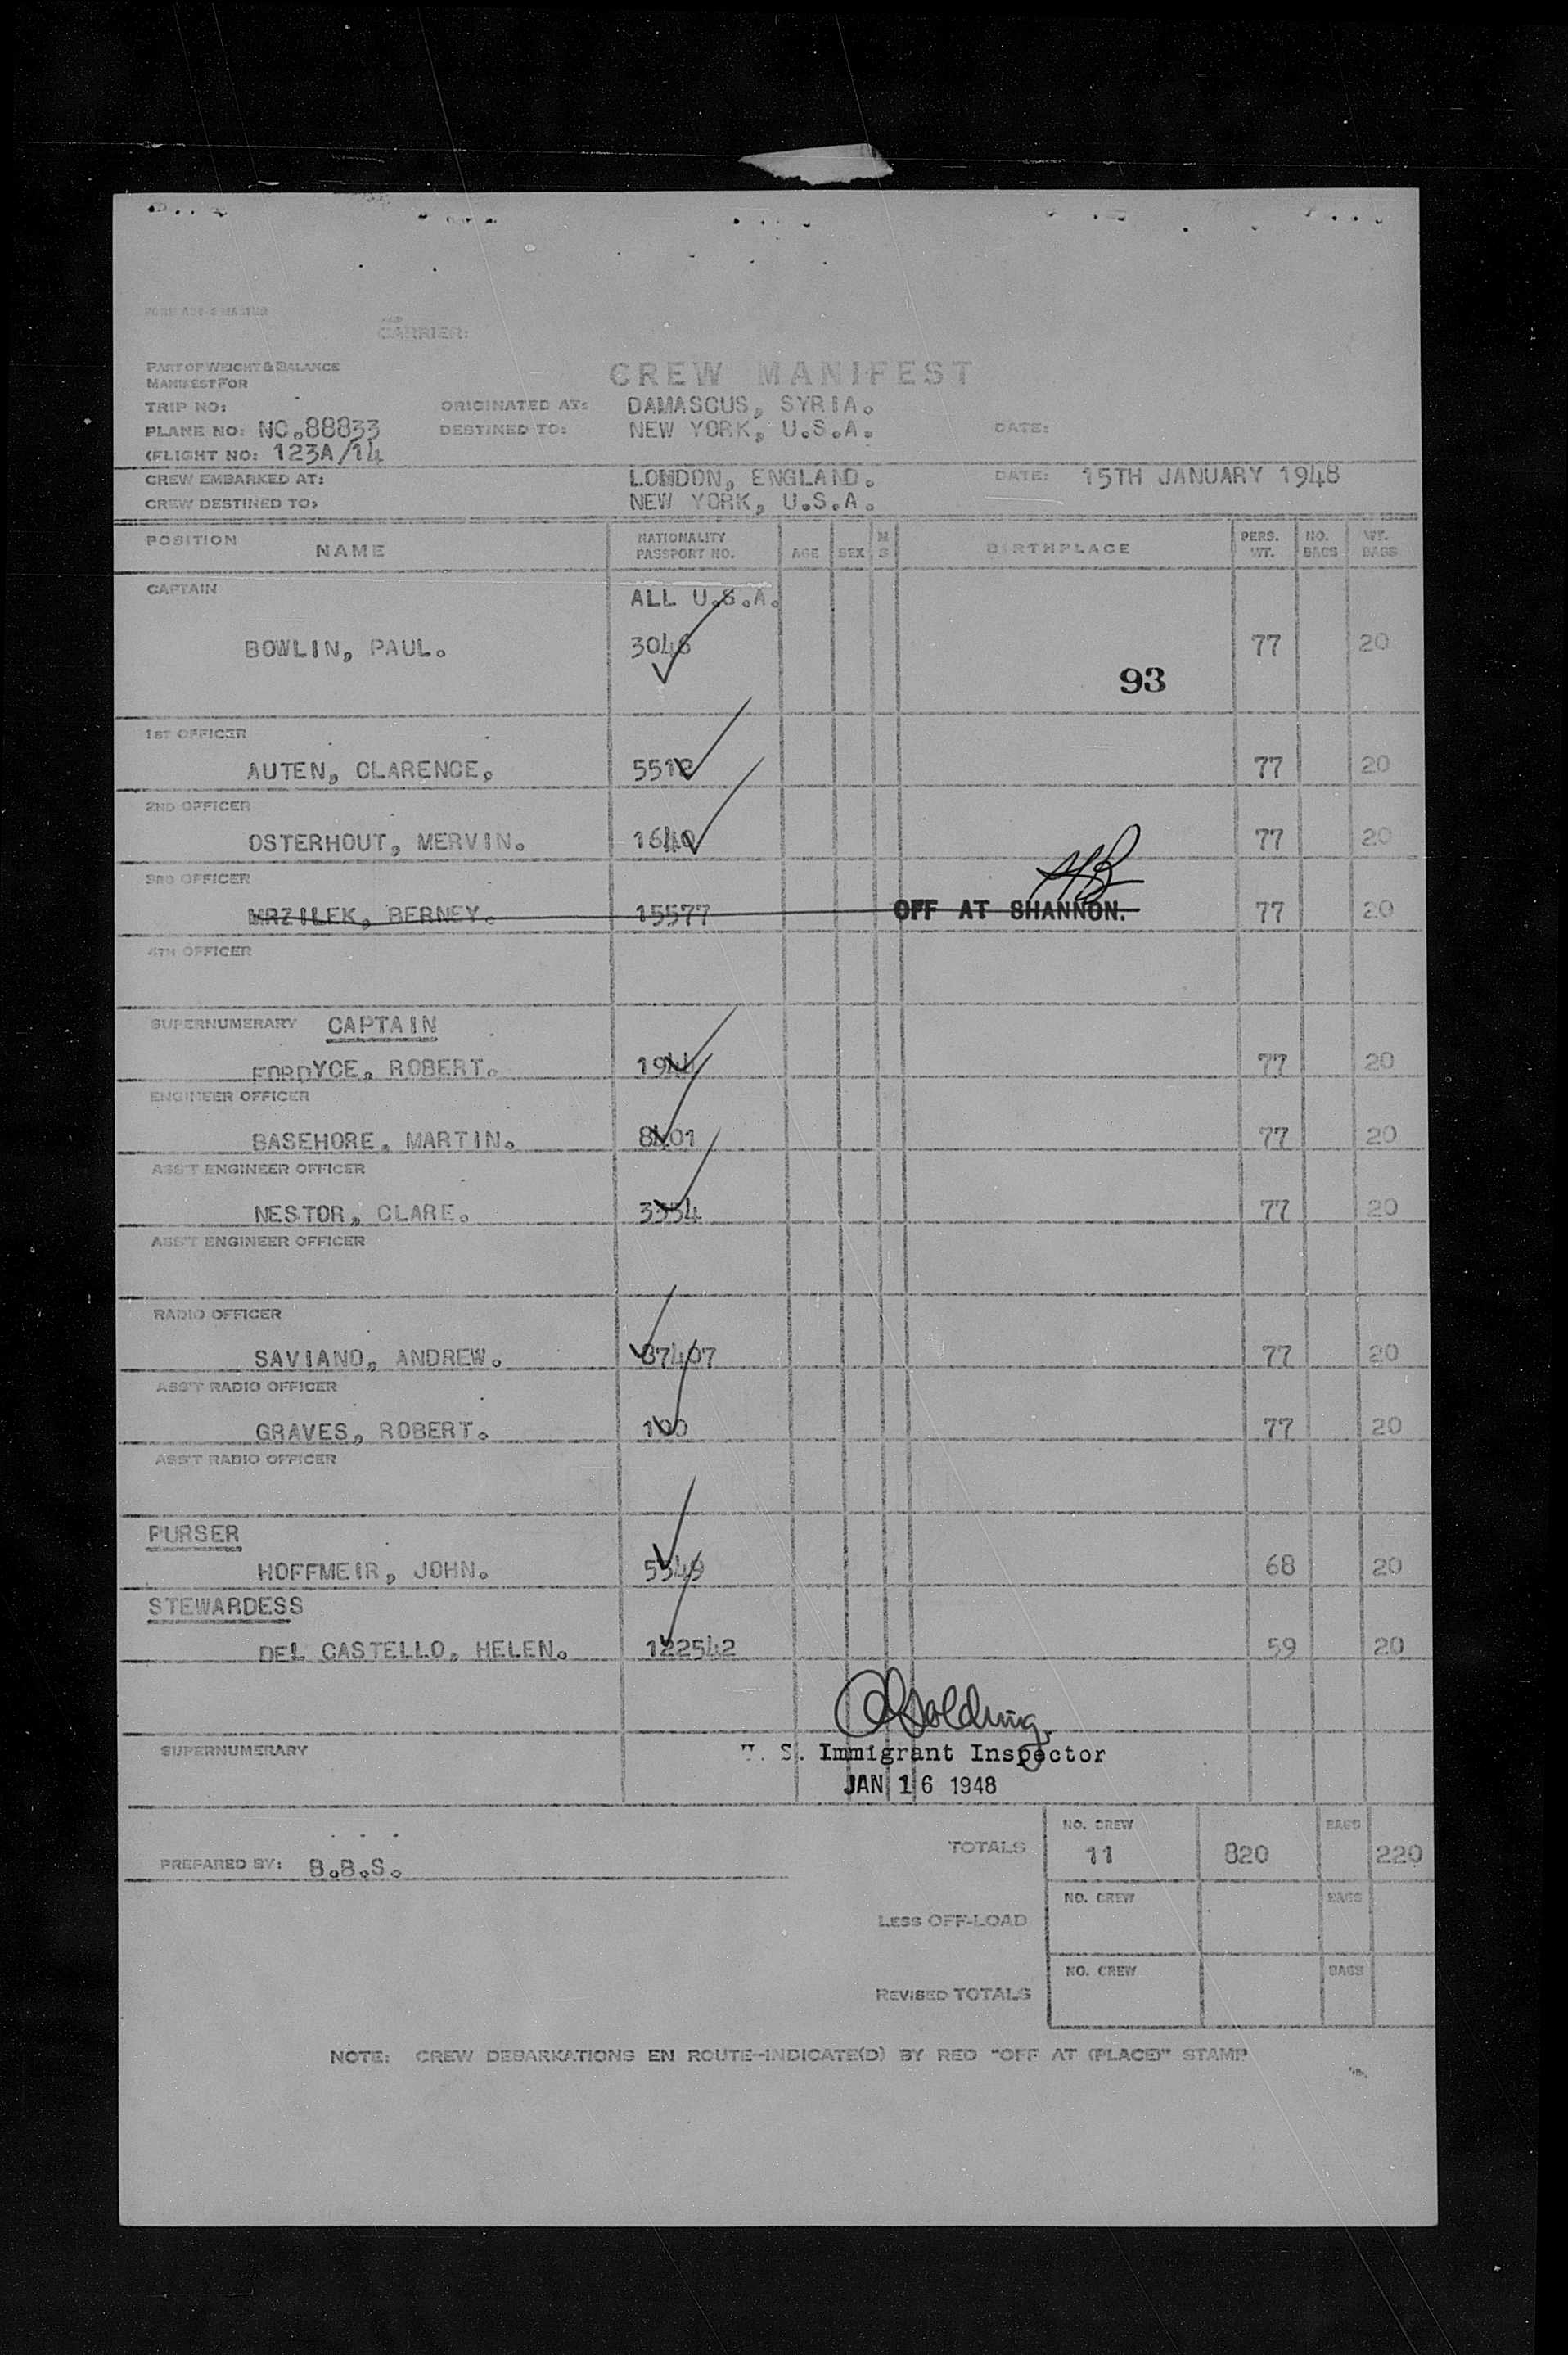 CARRIER:
PART OF WEIGHT & BALANCE
MANIFEST FOR
CREW MANIFEST
TRIP NO: ORIGINATED AT: DAMASCUS, SYRIA.
PLANE NO: NC.88833 DESTINED TO: NEW YORK, U.S.A. DATE:
(FLIGHT NO: 123A/14
CREW EMBARKED AT: LONDON, ENGLAND. DATE: 15TH JANUARY 1948
CREW DESTINED TO: NEW YORK, U.S.A.
POSITION NAME NATIONALITY PASSPORT NO. AGE SEX M S BIRTHPLACE PERS. WT. NO. BAGS WT. BAGS
CAPTAIN ALL U.S.A.
BOWLIN, PAUL. 3046 77 20
93
1ST OFFICER
AUTEN, CLARENCE, 5512 77 20
2ND OFFICER
OSTERHOUT, MERVIN. 1640 77 20
3RD OFFICER
MRZILEK, BERNEY. 15577 OFF AT SHANNON. 77 20
4TH OFFICER
SUPERNUMERARY CAPTAIN
FORDYCE, ROBERT. 77 20
ENGINEER OFFICER
BASEHORE, MARTIN. 8401 77 20
ASS'T ENGINEER OFFICER
NESTOR, CLARE. 77 20
ASS'T ENGINEER OFFICER
RADIO OFFICER
SAVIANO, ANDREW. 77 20
ASS'T RADIO OFFICER
GRAVES, ROBERT. 100 77 20
ASS'T RADIO OFFICER
PURSER
HOFFMEIR, JOHN. 68 20
STEWARDESS
DEL CASTELLO, HELEN. 122542 59 20
SUPERNUMERARY
U. S. Immigrant Inspector
JAN 16 1948
PREPARED BY: B.B.S.
TOTALS NO. CREW 11 820 BAGS 220
LESS OFF-LOAD NO. CREW BAGS
REVISED TOTALS NO. CREW BAGS
NOTE: CREW DEBARKATIONS EN ROUTE-INDICATE(D) BY RED "OFF AT (PLACE)" STAMP